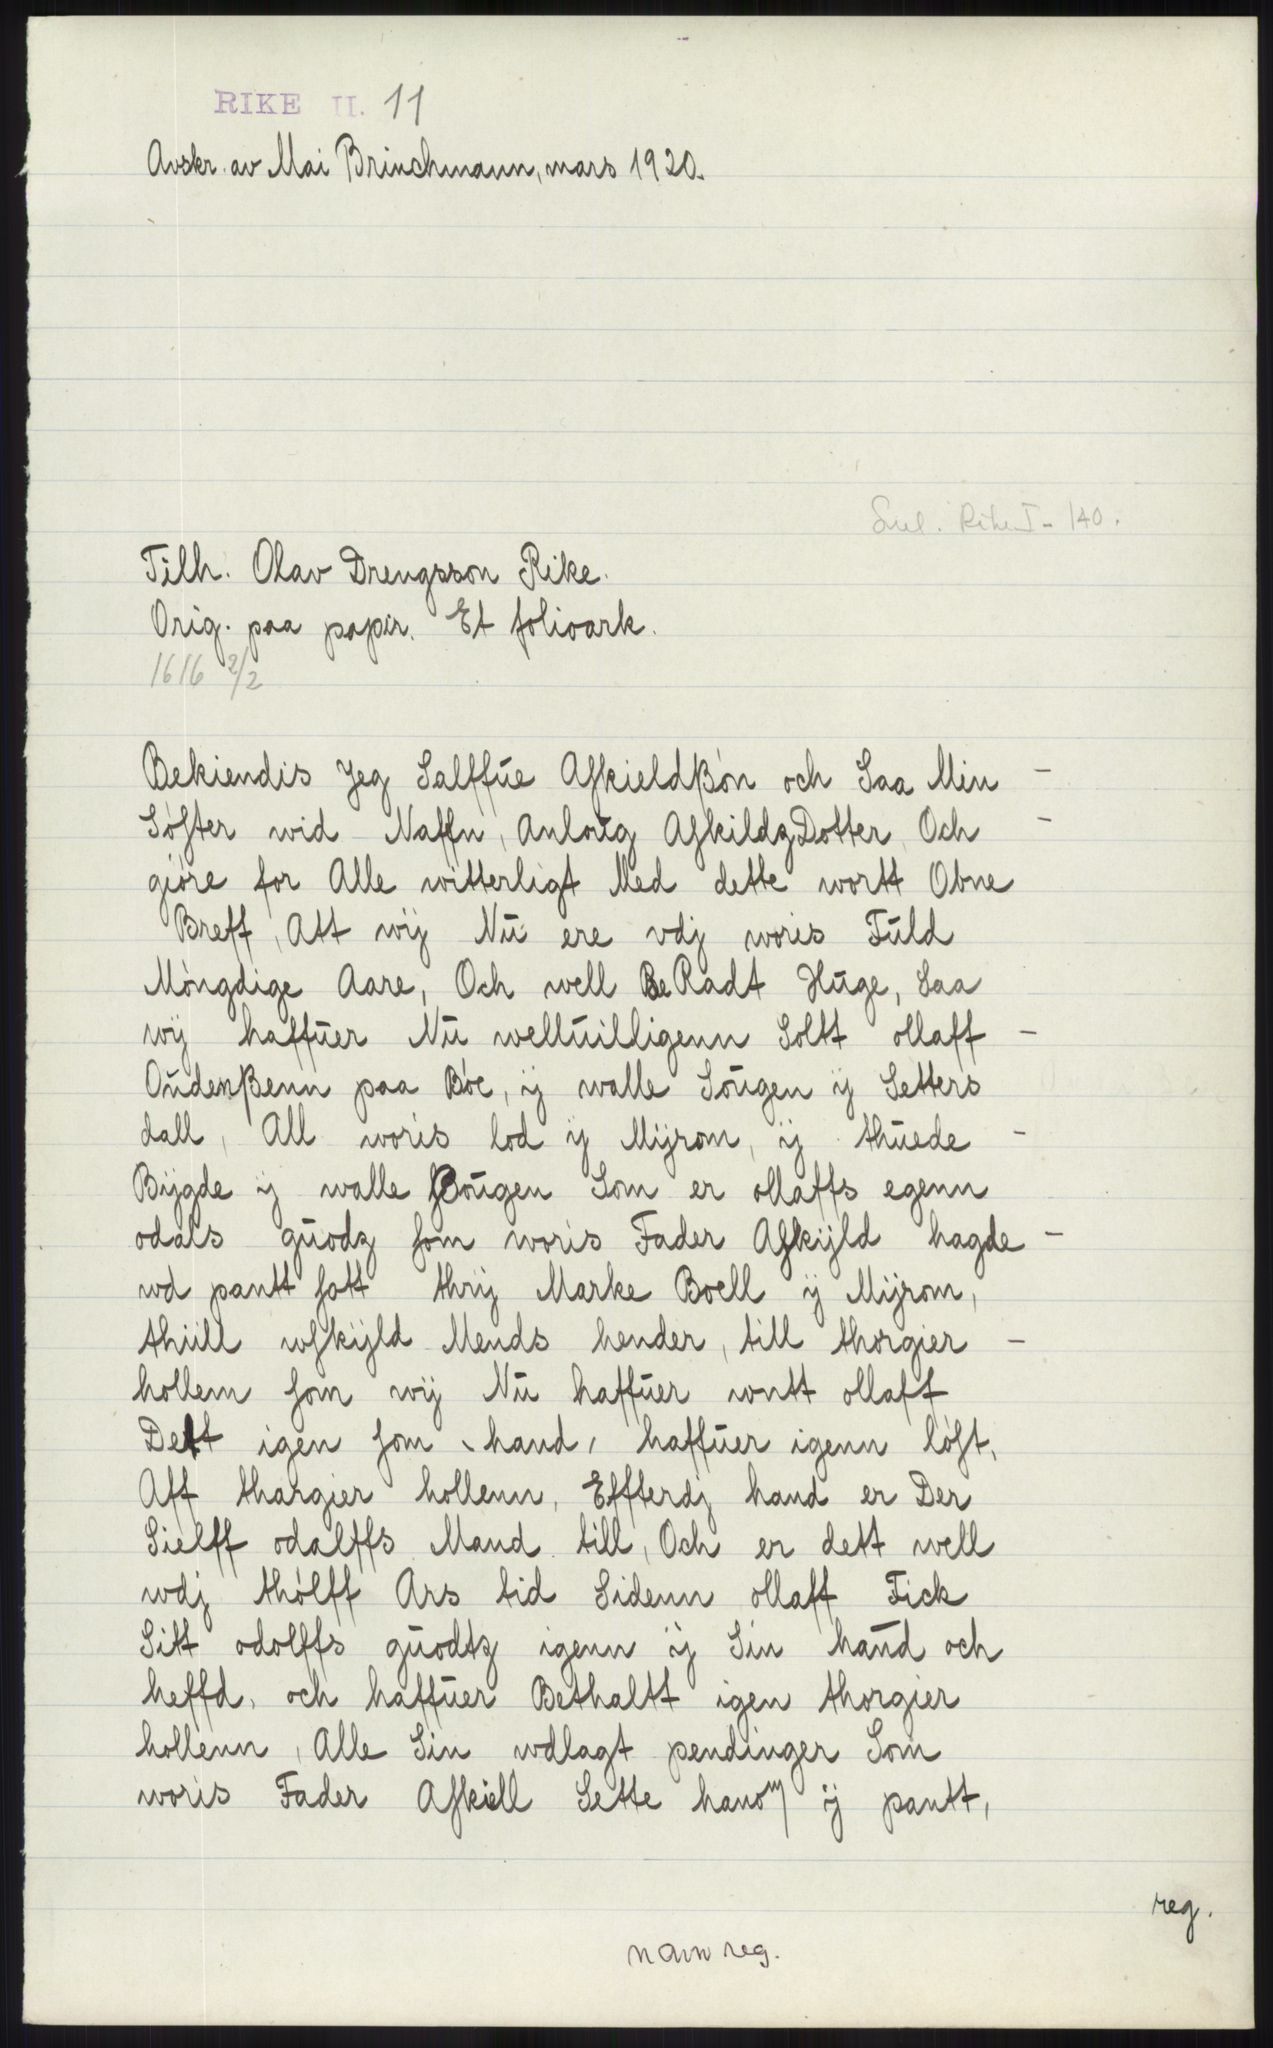 RIKE II. 11
Avskr. av Mai Brinchmann, mars 1920.
Rike I - 140.
Tilh. Olav Drengsson Rike.
Orig. paa papir. Et folioark.
1616 2/2
Bekiendis Jeg Salffue Aſkieldßón och Saa Min -
Sóſter wid Naffn, Anloug AſkildzDotter, Och -
gióre for Alle witterligt Med dette wortt Obne
Breff, Att wij Nu ere vdj woris Fuld
Móngdige Aare, Och well BeRadt Huge, Saa
wij haffuer Nu welluilligenn Soltt ollaff -
Oudenßenn paa Bóe, ij walle Sougen ij Setters
dall, All woris lod ij Mijrom, ij thuede -
Bijgde ij walle Sougen Som er ollaffs egenn
odals guodz ſom woris Fader Aſkijld hagde -
wd pantt ſatt thrij Marke Boell ij Mijrom,
thiill wſkijld Mends hender, till thorgier -
hollem ſom wij Nu haffuer wntt ollaff
Dett igen ſom hand, haffuer igenn lóſt,
Aff thargier hollenn, Effterdj hand er Der
Sielff odalffs Mand till, Och er dett well
wdj thólff Ars tid Sidenn ollaff Fick
Sitt odolffs guodtz igenn ij Sin hand och
heffd, och haffuer Bethaltt igen thorgier
hollenn, Alle Sin wdlagt pendinger Som
woris Fader Aſkiell Sette hanom ij pantt,
reg.
navnreg.